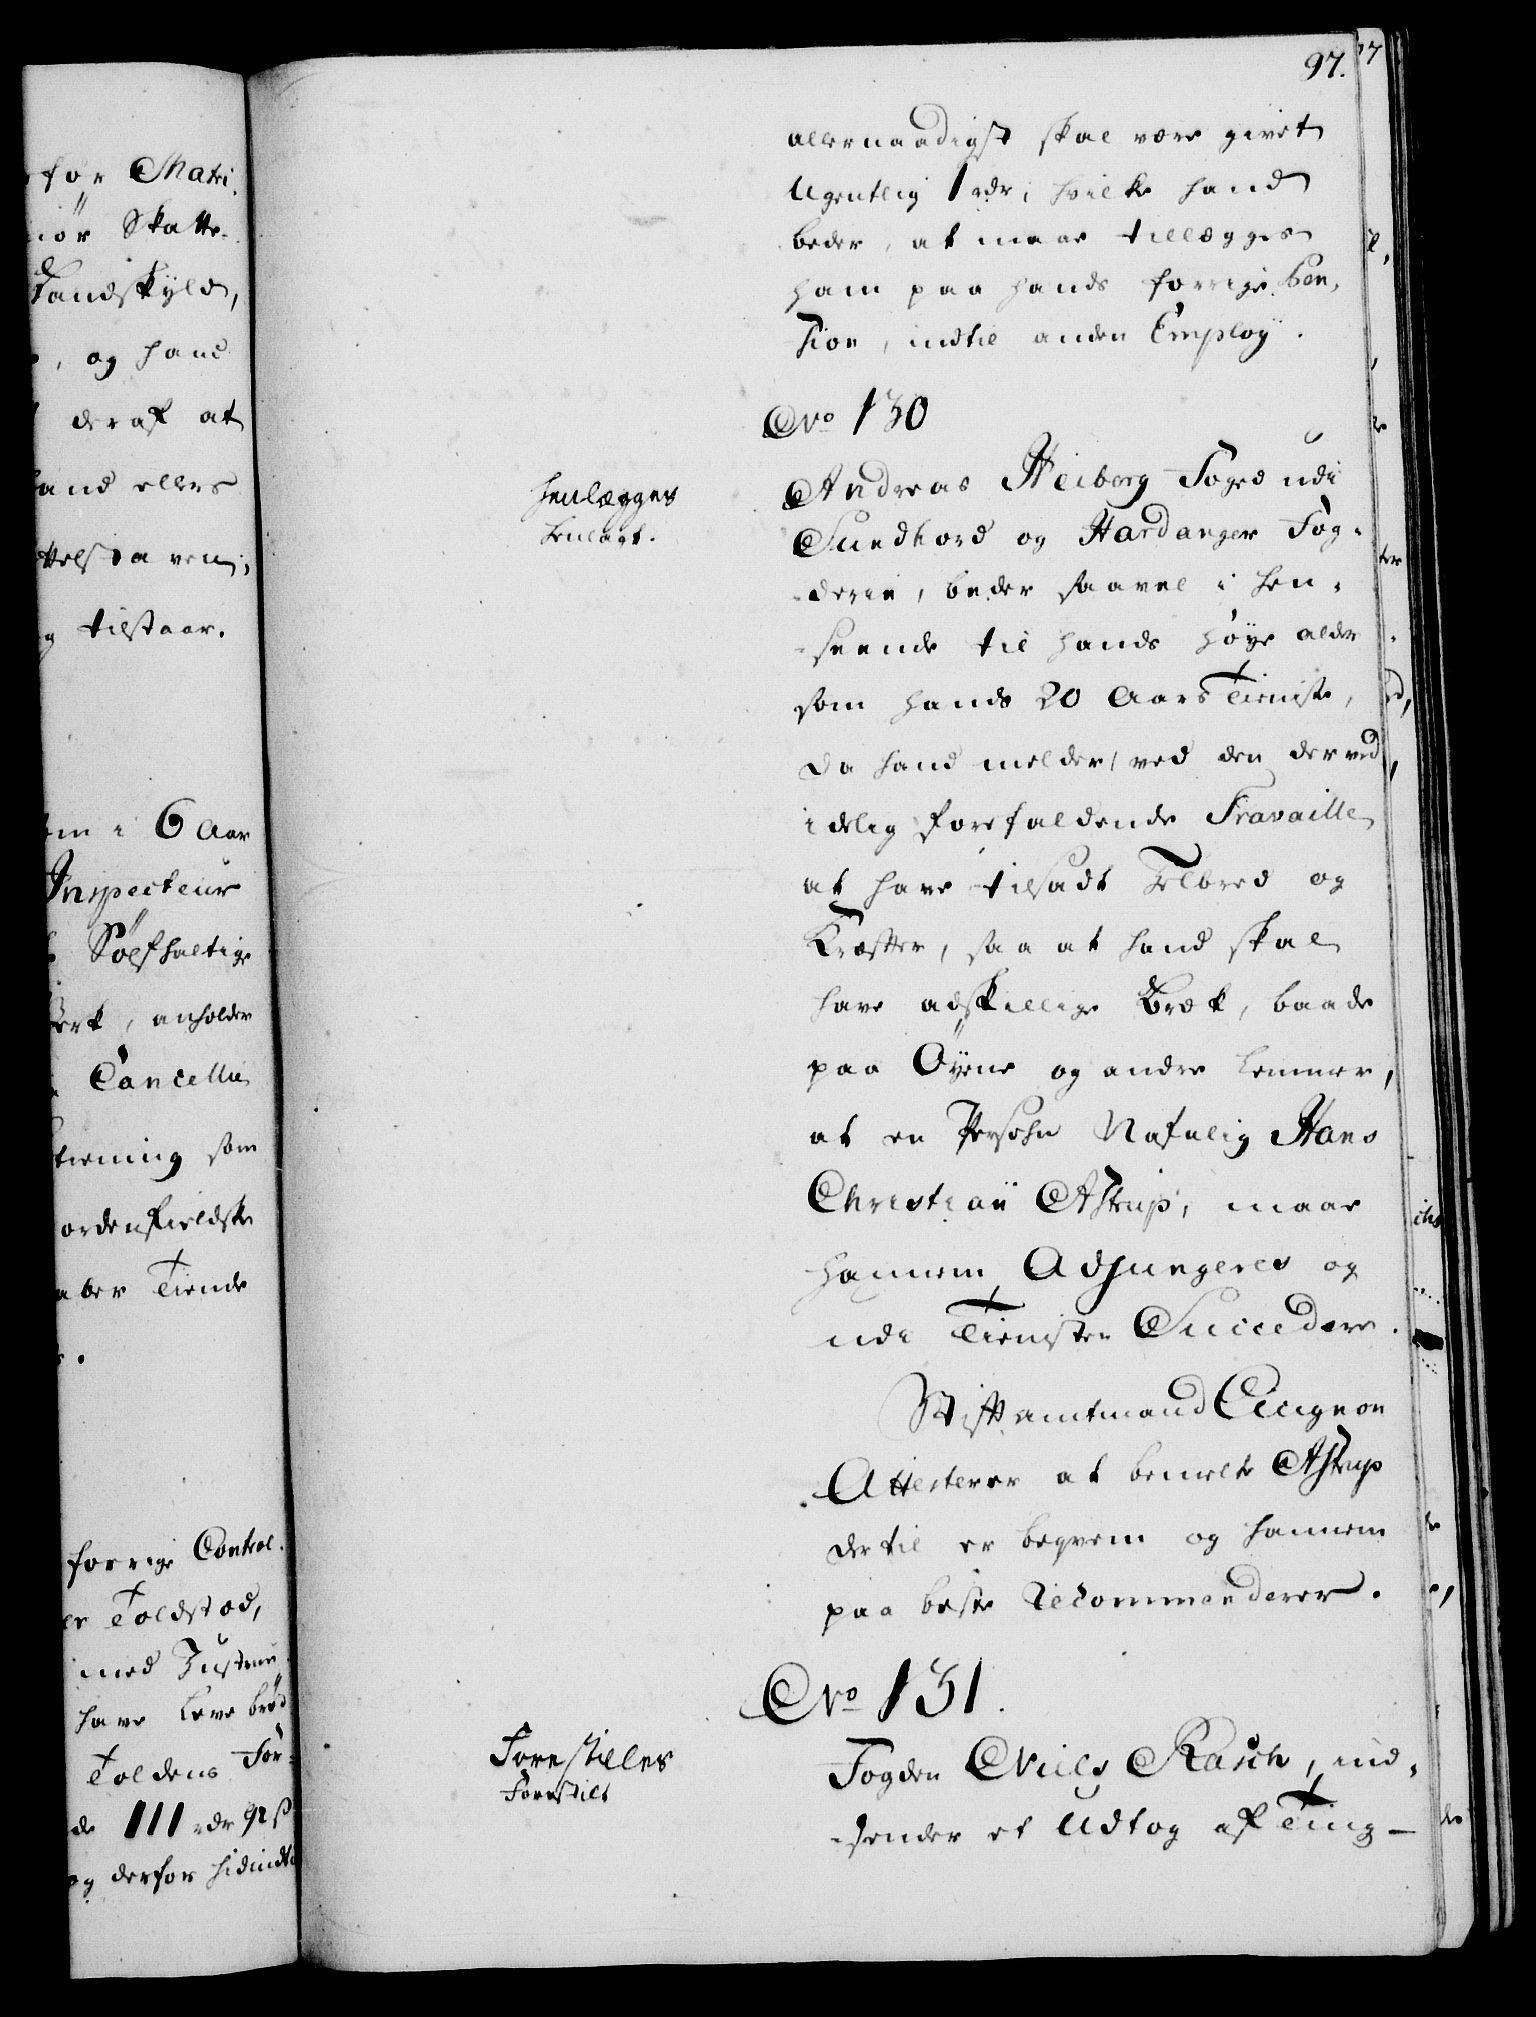 97.
allernaadigst skal være givet
Ugentlig 1 rdr; hvilke hand
beder, at maae tillægges
ham paa hands forrige Pen,
sion, indtil anden Employ.
No 130
Henlægges
henlagt.
Andreas Heiberg Foged udi
Sundhord og Hardanger Fog-
-derie, beder saavel i hen-
-seende til hands høye alder
som hands 20 Aars Tieniste,
da hand melder, ved den derved
idelig forefaldende Travaille
at have tilsadt Helbred og
Kræfter, saa at hand skal
have adskillige Bræk, baade
paa Øyene og andre Lemmer,
at en Persohn Nafnlig Hans
Christian Astrup, maae
hannem Adjungeres og
udi Tienisten Succedere.
Stiftamtmand Cicignon
Attesterer at bemelte Astrup
dertil er beqvem og hannem
paa beste Recommenderer.
No 131.
Forestilles
Forestilt
Fogden Niels Rasch, ind-
-sender et Udtog af Ting-
for Matri,
Skatte-
Landskyld,
, og hand
deraf at
hand ellers
tilstaar.
i 6 Aar
Inspecteur
Sølfhaltige
, anholder
Cancellie
som
ordenfieldske
Tiende
forrige Control.
Toldstæd,
med
have Levebrød
Toldens For-
de 111 rdr 92 s
og derfor hidindtil